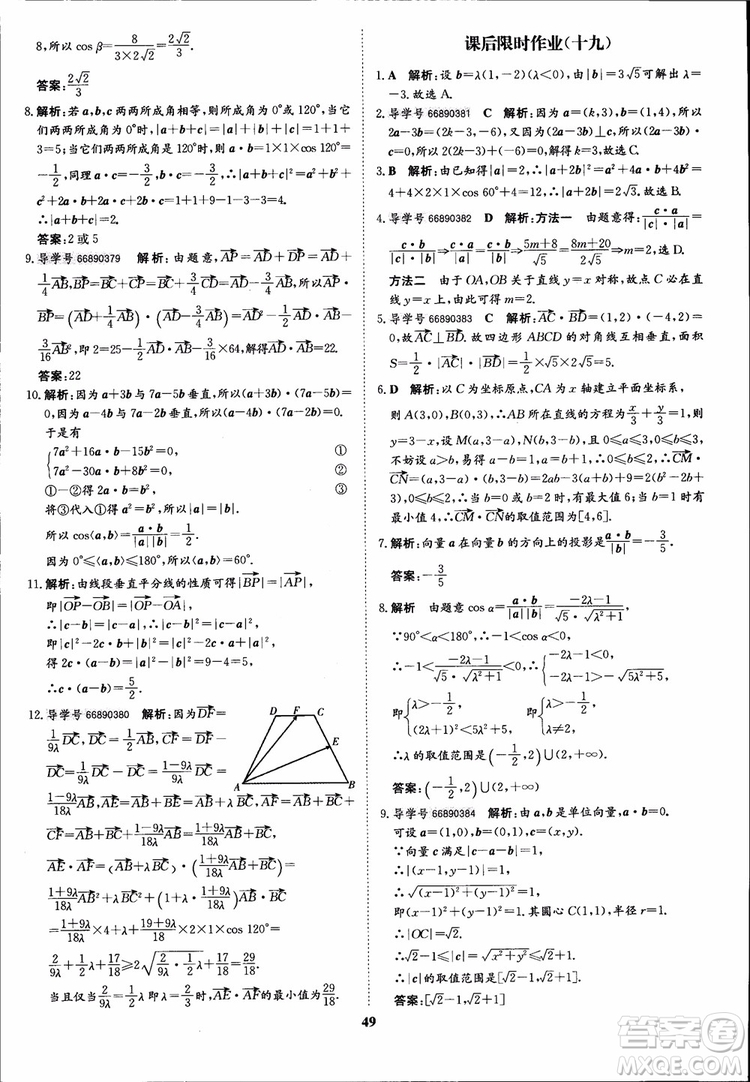 8,所以 cos β=8/(3×2√2)=2√2/3.
答案:2√2/3
8.解析:若a,b,c两两所成角相等,则所成角为0°或120°,当它
们两两所成角为0°时,|a+b+c|=|a|+|b|+|c|=1+1+
3=5;当它们两两所成角为120°时,a·b=|a||b|cos 120°=
-1/2,同理a·c=-3/2,b·c=-3/2,|a+b+c|²=a²+b²+
c²+2a·b+2b·c+2a·c=1+1+9-1-3-3=4.
∴|a+b+c|=2.
答案:2或5
9.导学号 66890379 解析:由题意,AP=AD+DP=AD+
1/4AB,BP=BC+CP=BC+3/4CD=AD-3/4AB,所以AP·
BP=(AD+1/4AB)·(AD-3/4AB)=AD²-1/2AD·AB-
3/16AB²,即2=25-1/2AD·AB-3/16×64,解得AD·AB=22.
答案:22
10.解析:因为a+3b与7a-5b垂直,所以(a+3b)·(7a-5b)=
0,因为a-4b与7a-2b垂直,所以(a-4b)·(7a-2b)=0.
于是有
{7a²+16a·b-15b²=0, ①
7a²-30a·b+8b²=0. ②
①-②得2a·b=b². ③
将③代入①得|a|=|b|.
所以cos⟨a,b⟩=a·b/(|a||b|)=1/2.
因为0°≤⟨a,b⟩≤180°,所以⟨a,b⟩=60°.
11.解析:由线段垂直平分线的性质可得|BP|=|AP|,
即|OP-OB|=|OP-OA|,
∴|c-b|=|c-a|.∴|c-b|²=|c-a|².
即|c|²-2b·c+|b|²=|c|²-2a·c+|a|².
得2c·(a-b)=|a|²-|b|²=9-4=5.
∴c·(a-b)=5/2.
12.导学号 66890380 解析:因为DF=
1/9λ DC,DC=1/2AB,CF=DF-DC=
1/9λ DC-DC=(1-9λ)/9λ DC=
(1-9λ)/18λ AB,AE=AB+BE=AB+λBC,AF=AB+BC+
CF=AB+BC+(1-9λ)/18λ AB=(1+9λ)/18λ AB+BC,
AE·AF=(AB+λBC)·((1+9λ)/18λ AB+BC)=
(1+9λ)/18λ AB²+λBC²+(1+λ·(1+9λ)/18λ)AB·BC=
(1+9λ)/18λ×4+λ+(19+9λ)/18×2×1×cos 120°=
2/9λ+1/2λ+17/18≥2√(2/9λ·λ/2)+17/18=29/18.
当且仅当2/9λ=1/2λ即λ=2/3时,AE·AF的最小值为29/18.
课后限时作业(十九)
1.A 解析:设b=λ(1,-2)(λ<0),而由|b|=3√5可解出λ=
-3.故选A.
2.导学号 66890381 C 解析:因为a=(k,3),b=(1,4),所以
2a-3b=(2k-3,-6).因为(2a-3b)⊥c,所以(2a-3b)·c=
(2k-3,-6)·(2,1)=2(2k-3)-6=0,解得k=3.故选C.
3.B 解析:由已知得|a|=2,∴|a+2b|²=a²+4a·b+4b²=
4+4×2×1×cos 60°+4=12.∴|a+2b|=2√3.故选B.
4.导学号 66890382 D 解析:方法一 由题意得:c·a/(|c|·|a|)=
c·b/(|c|·|b|)⇒c·b/|b|=c·a/|a|⇒(5m+8)/√5=(8m+20)/2√5⇒m=2,故选D.
方法二 由于OA,OB关于直线y=x对称,故点C必在直
线y=x上,由此可得m=2.
5.导学号 66890383 C 解析:AC·BD=(1,2)·(-4,2)=
0,故AC⊥BD.故四边形ABCD的对角线互相垂直,面积
S=1/2·|AC|·|BD|=1/2×√5×2√5=5.
6.D 解析:以C为坐标原点,CA为x轴建立平面坐标系,
则A(3,0),B(0,3),所以AB所在直线的方程为x/3+y/3=1,
则y=3-x.设M(a,3-a),N(b,3-b),且0≤a≤3,0≤b≤3,
不妨设a>b,易得a-b=1,所以a=b+1,0≤b≤2,所以CM·
CN=(a,3-a)·(b,3-b)=2ab-3(a+b)+9=2(b²-2b+3),
0≤b≤2,所以当b=0或b=2时,有最大值6;当b=1时有
最小值4,CM·CN的取值范围为[4,6].
7.解析:向量a在向量b的方向上的投影是a·b/|b|=-3/5.
答案:-3/5
8.解析 由题意cos α=a·b/(|a||b|)=(-2λ-1)/(√5·√(λ²+1)),
∵90°<α<180°,∴-1<cos α<0.
∴-1<(-2λ-1)/(√5·√(λ²+1))<0.∴{-2λ-1<0, -2λ-1>-√5·√(λ²+1),
即{λ>-1/2, (2λ+1)²<5(λ²+1), 即{λ>-1/2, λ≠2.
∴λ的取值范围是(-1/2,2)∪(2,+∞).
答案:(-1/2,2)∪(2,+∞)
9.导学号 66890384 解析:由a,b是单位向量,a·b=0.
可设a=(1,0),b=(0,1),c=(x,y).
∵向量c满足|c-a-b|=1,
∴|(x-1,y-1)|=1.
∴√((x-1)²+(y-1)²)=1,
即(x-1)²+(y-1)²=1.其圆心C(1,1),半径r=1.
∴|OC|=√2.
∴√2-1≤|c|=√(x²+y²)≤√2+1.
∴|c|的取值范围是[√2-1,√2+1].
答案:[√2-1,√2+1]
D F C
E
A B
49
答案圈
MXQE.COM